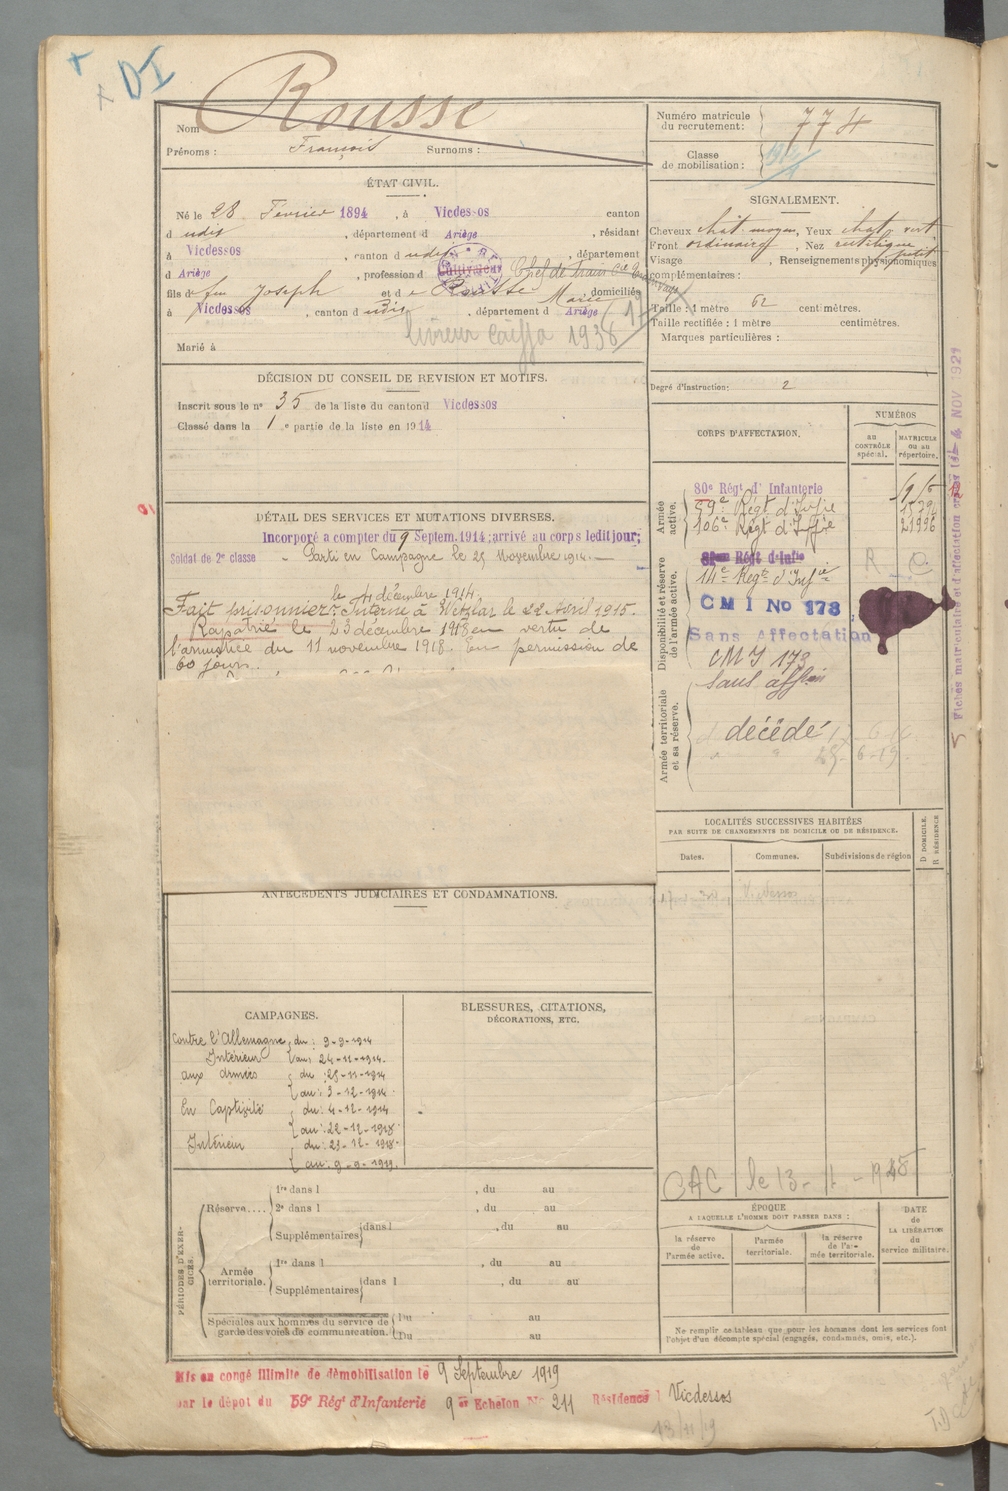 DI
Nom Rousse
Prénoms : François Surnoms :
Numéro matricule du recrutement : 774
Classe de mobilisation :
ÉTAT CIVIL.
Né le 28 Février 1894, à Vicdessos canton
d udit, département d Ariège, résidant
à Vicdessos, canton d udit, département
d Ariège, profession d Cultivateur Chef de
fils d feu Joseph et d e Rousse Marie domiciliés
à Vicdessos, canton d udit, département d Ariège
livreur Caïffa 1936
Marié à
SIGNALEMENT.
Cheveux chat. moyen, Yeux chat. vert
Front ordinaire, Nez rectiligne
Visage , Renseignements physionomiques
complémentaires :
Taille : 1 mètre 62 centimètres.
Taille rectifiée : 1 mètre centimètres.
Marques particulières :
Degré d'instruction : 2
DÉCISION DU CONSEIL DE REVISION ET MOTIFS.
Inscrit sous le n° 35 de la liste du canton d Vicdessos
Classé dans la 1 re partie de la liste en 1914
CORPS D'AFFECTATION.
NUMÉROS
AU CONTRÔLE spécial.
MATRICULE OU AU répertoire.
Armée active.
80e Régt d' Infanterie
59e Régt d'Inf ie
106e Régt d'Inf ie 21996
Disponibilité et réserve de l'armée active.
Régt d'Infie
14e Régt d'Inf ie
R O
CMI No 173
Sans Affectation
CMI 173
Sans aff
Armée territoriale et sa réserve.
décédé
Fiches matriculaire et d'affectation 4 NOV 1921
DÉTAIL DES SERVICES ET MUTATIONS DIVERSES.
Incorporé a compter du 9 Septem. 1914 ; arrivé au corps ledit jour;
Soldat de 2e classe - Parti en Campagne le 25 Novembre 1914.
le 4 décembre 1914.
Fait prisonnier. Interné à Wetzlar le 22 Avril 1915.
Rapatrié le 23 décembre 1918 en vertu de
l'armistice du 11 novembre 1918. En permission de
60 jours.
LOCALITÉS SUCCESSIVES HABITÉES
PAR SUITE DE CHANGEMENTS DE DOMICILE OU DE RÉSIDENCE.
Dates. Communes. Subdivisions de région
D DOMICILE.
R RÉSIDENCE
Vicdessos
CAC le 13-
ANTÉCÉDENTS JUDICIAIRES ET CONDAMNATIONS.
CAMPAGNES.
Contre l'Allemagne du : 9-9-1914
Intérieur au : 24-11-1914.
aux armées du : 25-11-1914
au : 3-12-1914.
En Captivité du : 4-12-1914
au : 22-12-1918.
Intérieur du : 23-12-1918.
au : 9-9-1919.
BLESSURES, CITATIONS,
DÉCORATIONS, ETC.
PÉRIODES D'EXERCICES.
Réserve....
1re dans l , du au
2e dans l , du au
Supplémentaires dans l , du au
Armée territoriale.
1re dans l , du au
Supplémentaires dans l , du au
Spéciales aux hommes du service de garde des voies de communication.
Du au
Du au
ÉPOQUE
A LAQUELLE L'HOMME DOIT PASSER DANS :
la réserve de l'armée active.
l'armée territoriale.
la réserve de l'armée territoriale.
DATE DE LA LIBÉRATION du service militaire.
Ne remplir ce tableau que pour les hommes dont les services font
l'objet d'un décompte spécial (engagés, condamnés, omis, etc.).
Mis en congé illimité de démobilisation le 9 Septembre 1919
par le dépôt du 59e Régt d'Infanterie 9 er Echelon N° 211 Résidence : Vicdessos